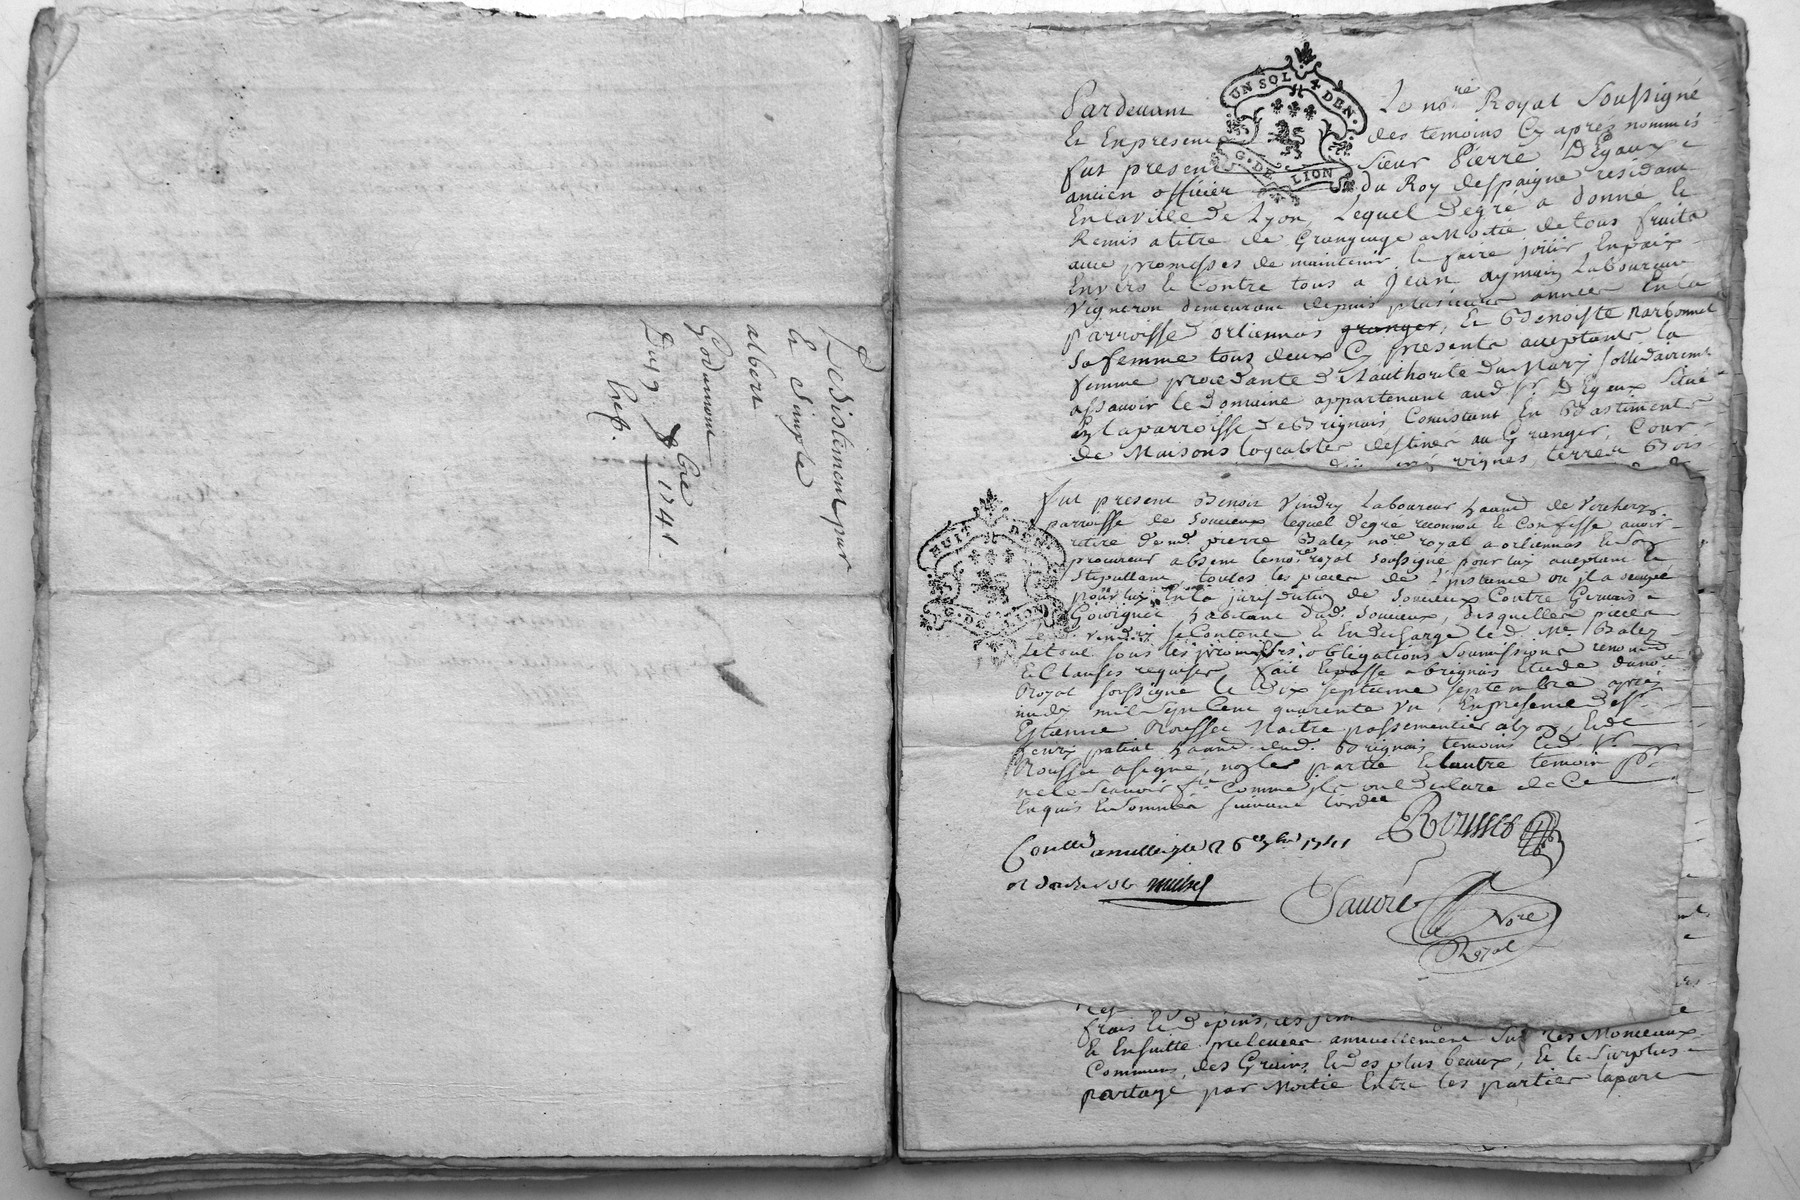 Desistement pur
et simple
albert
Godamont
Du 19 8bre 1741
UN SOL 4 DEN.
G. DE LION
Pardevant Le no.re Royal Soussigné
Et En presence des temoins Cy apres nommés
fut present Sieur Pierre Degaux
ancien officier du Roy despaigne residant
En la ville de Lyon, Lequel degré a donné Et
Remis a titre de Grangeage a Moitié de tous fruits
avec promesses de maintenir Et faire jouir En paix
Envers Et Contre tous a Jean aymain Laboureur
Vigneron demeurant depuis plusieurs années En la
parroisse dorliennas granger, Et Benoiste Narbonnet
Sa femme tous deux Cy presents acceptants, la
femme procedante de Lauthorité du Mary sollidairement
assavoir le Domaine appartenant aud. Sr. Degaux Situé
En la parroisse de Brignais, Consistant En Bastiments
de Maisons logeables destinés au Granger, Cour
vignes, terres, Bois
HUIT DEN.
G. DE LION
fut present Benoit Vindry Laboureur habitant de Verchery
parroisse de Soucieux lequel degré reconnoit Et Confesse avoir
retiré de me. pierre Balez nore. royal a orliennas Et son
procureur absent le nore. royal Soussigné pour luy acceptant Et
Stipullant, toutes les pieces de L'instance ou il a occupé
pour luy En la jurisdiction de Soucieux Contre Germain
Goirignet habitant dud. Soucieux, desquelles pieces
led. Vindry se Contente Et En decharge led. Me. Balez
Le tout sous les promesses, obligations Soumissions renon.on
Et Clauses requises, fait Et passé a brignais Etude du nore.
Royal soussigné le dix septieme Septembre apres
midy mil Sept Cent quarente un En presence de sr.
Estienne Rousset Maitre passementier a lyon, Et de
henry patiat habitant dud. Brignais temoins led. Sr.
Rousset a signé, non les partie Et lautre temoin pr.
ne le Scavoir fre. Comme ils ont declaré de Ce
Enquis Et Sommés Suivant lordce.
Rousset
Conllé a millery le 26 7bre 1741
Favre
Nore
Royal
frais Et depens,
Et Ensuitte prelever annuellement Sur les Monceaux
Communs, des Grains Et des plus beaux, Et le Surplus
partagé par Moitié Entre les parties